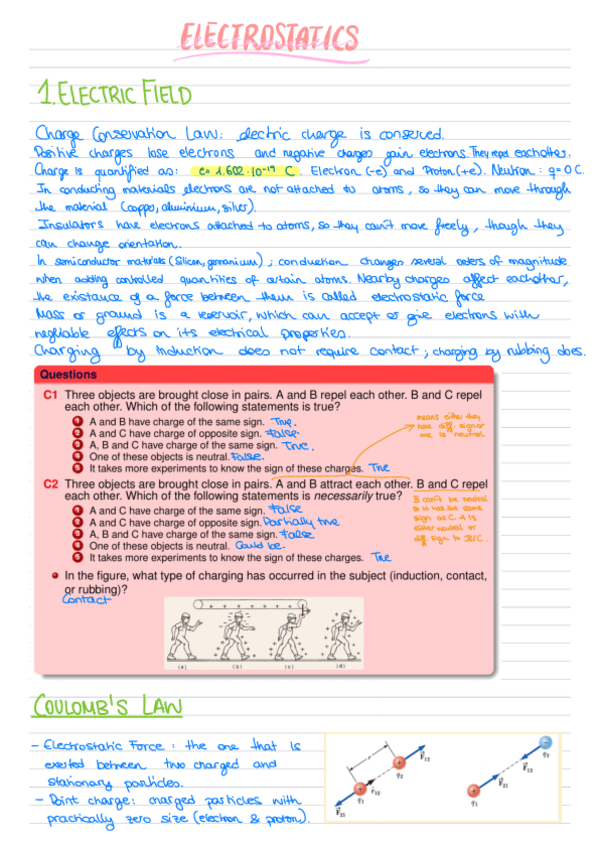 ELECTROSTATICS
1. ELECTRIC FIELD
Charge Conservation Law: electric charge is conserved.
Positive charges lose electrons and negative charges gain electrons. They repel eachother.
Charge is quantified as: e = 1.602·10⁻¹⁹ C. Electron (-e) and Proton (+e). Neutron: q=0 C.
In conducting materials electrons are not attached to atoms, so they can move through
the material (copper, aluminium, silver).
Insulators have electrons attached to atoms, so they can't move freely, though they
can change orientation.
In semiconductor materials (silicon, germanium); conduction changes several orders of magnitude
when adding controlled quantities of certain atoms. Nearby charges affect eachother,
the existance of a force between them is called electrostatic force
Mass or ground is a reservoir, which can accept or give electrons with
negliable effects on its electrical properties.
Charging by induction does not require contact; charging by rubbing does.
Questions
C1 Three objects are brought close in pairs. A and B repel each other. B and C repel
each other. Which of the following statements is true?
1 A and B have charge of the same sign. True.
2 A and C have charge of opposite sign. False.
3 A, B and C have charge of the same sign. True.
4 One of these objects is neutral. False.
5 It takes more experiments to know the sign of these charges. True
means either they
have diff. sign or
one is neutral.
C2 Three objects are brought close in pairs. A and B attract each other. B and C repel
each other. Which of the following statements is necessarily true?
1 A and C have charge of the same sign. False
2 A and C have charge of opposite sign. Partially true
3 A, B and C have charge of the same sign. False.
4 One of these objects is neutral. Could be.
5 It takes more experiments to know the sign of these charges. True
B can't be neutral
it has the same
sign as C. A is
either neutral or
diff. sign to B/C.
In the figure, what type of charging has occurred in the subject (induction, contact,
or rubbing)?
Contact
(a) (b) (c) (d)
COULOMB'S LAW
- Electrostatic Force: the one that is
exerted between two charged and
stationary particles.
- Point charge: charged particles with
practically zero size (electron & proton).
r
q₁
q₂
F₁₂
F₂₁
r̂₁₂
q₂
F₁₂
F₂₁
q₁